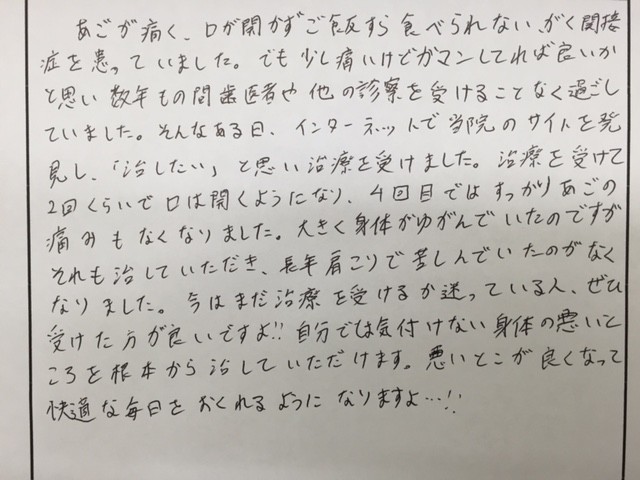 あごが痛く、口が開かずご飯すら食べられない、がく関接
症を患っていました。でも少し痛いけどガマンしてれば良いか
と思い数年もの間歯医者や他の診察を受けることなく過ごし
ていました。そんなある日、インターネットで当院のサイトを発
見し、「治したい」と思い治療を受けました。治療を受けて
2回くらいで口は開くようになり、4回目ではすっかりあごの
痛みもなくなりました。大きく身体がゆがんでいたのですが
それも治していただき、長年肩こりで苦しんでいたのがなく
なりました。今はまだ治療を受けるか迷っている人、ぜひ
受けた方が良いですよ!!自分では気付けない身体の悪いと
ころを根本から治していただけます。悪いとこが良くなって
快適な毎日をおくれるようになりますよ…!!